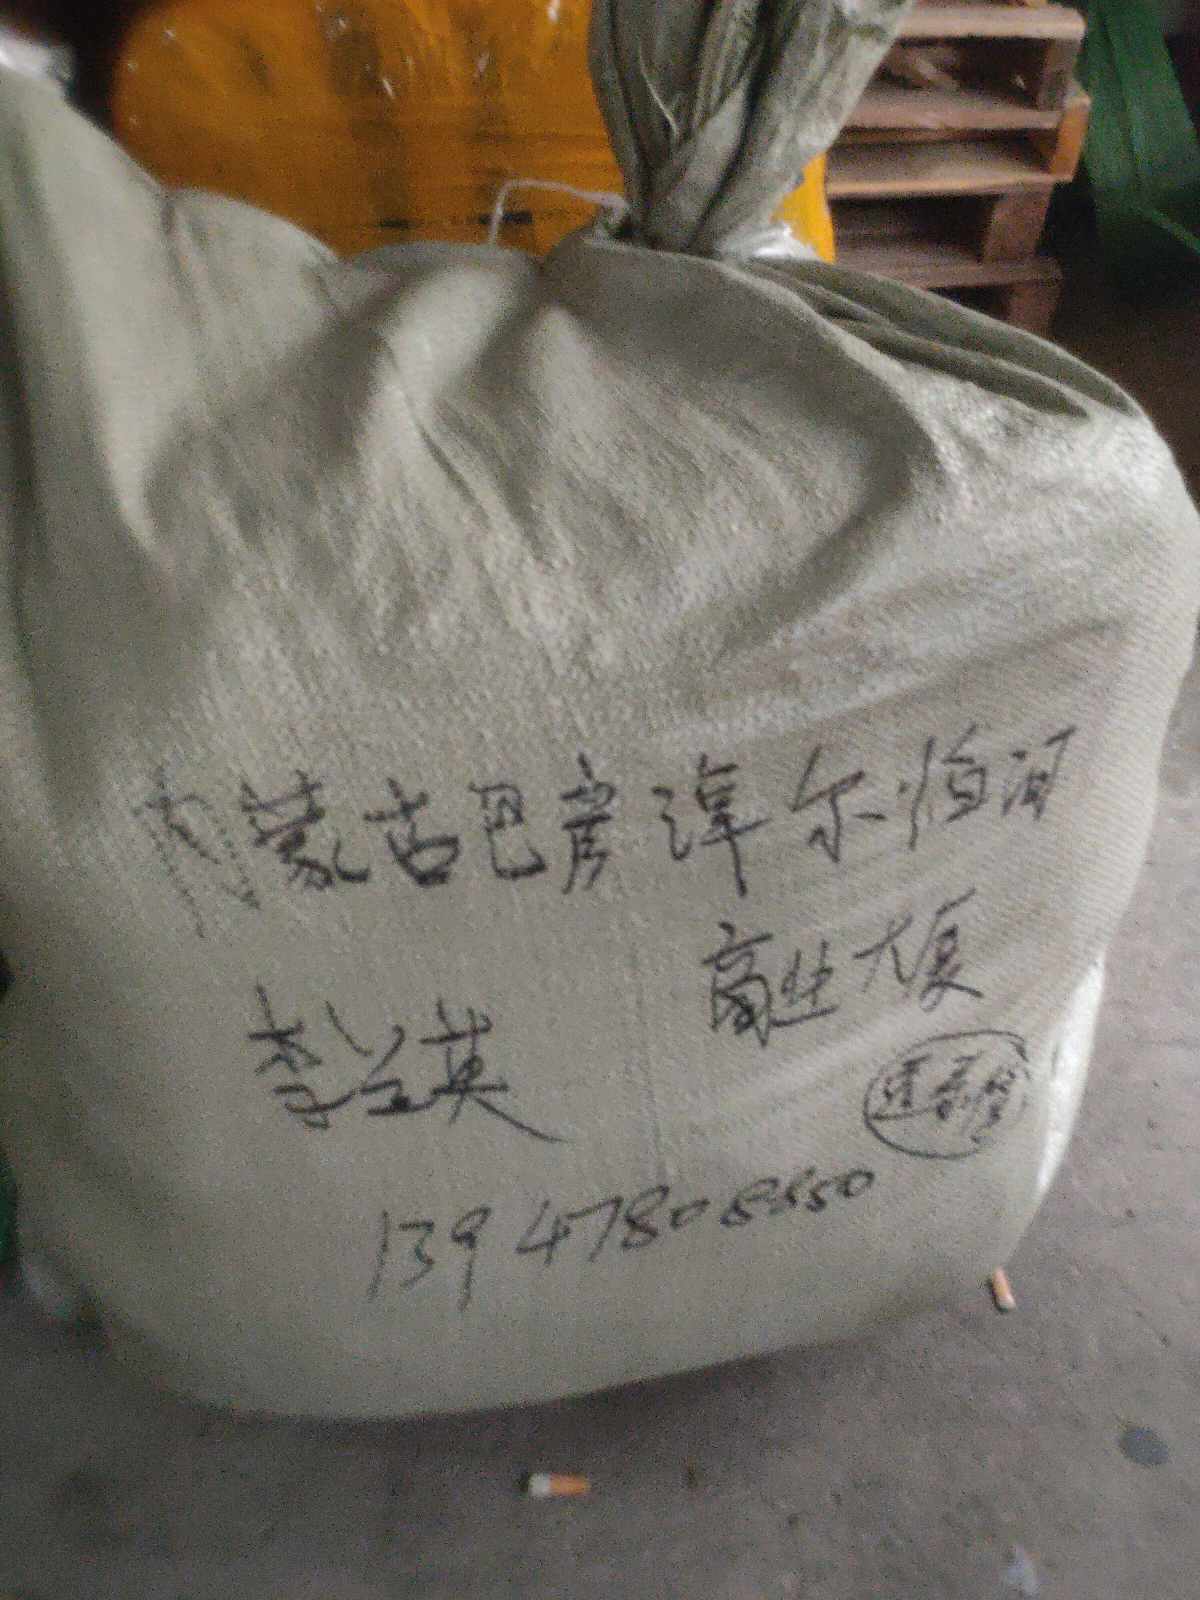 内蒙古巴彦淖尔临河
高业大厦
李兰英
13947808850